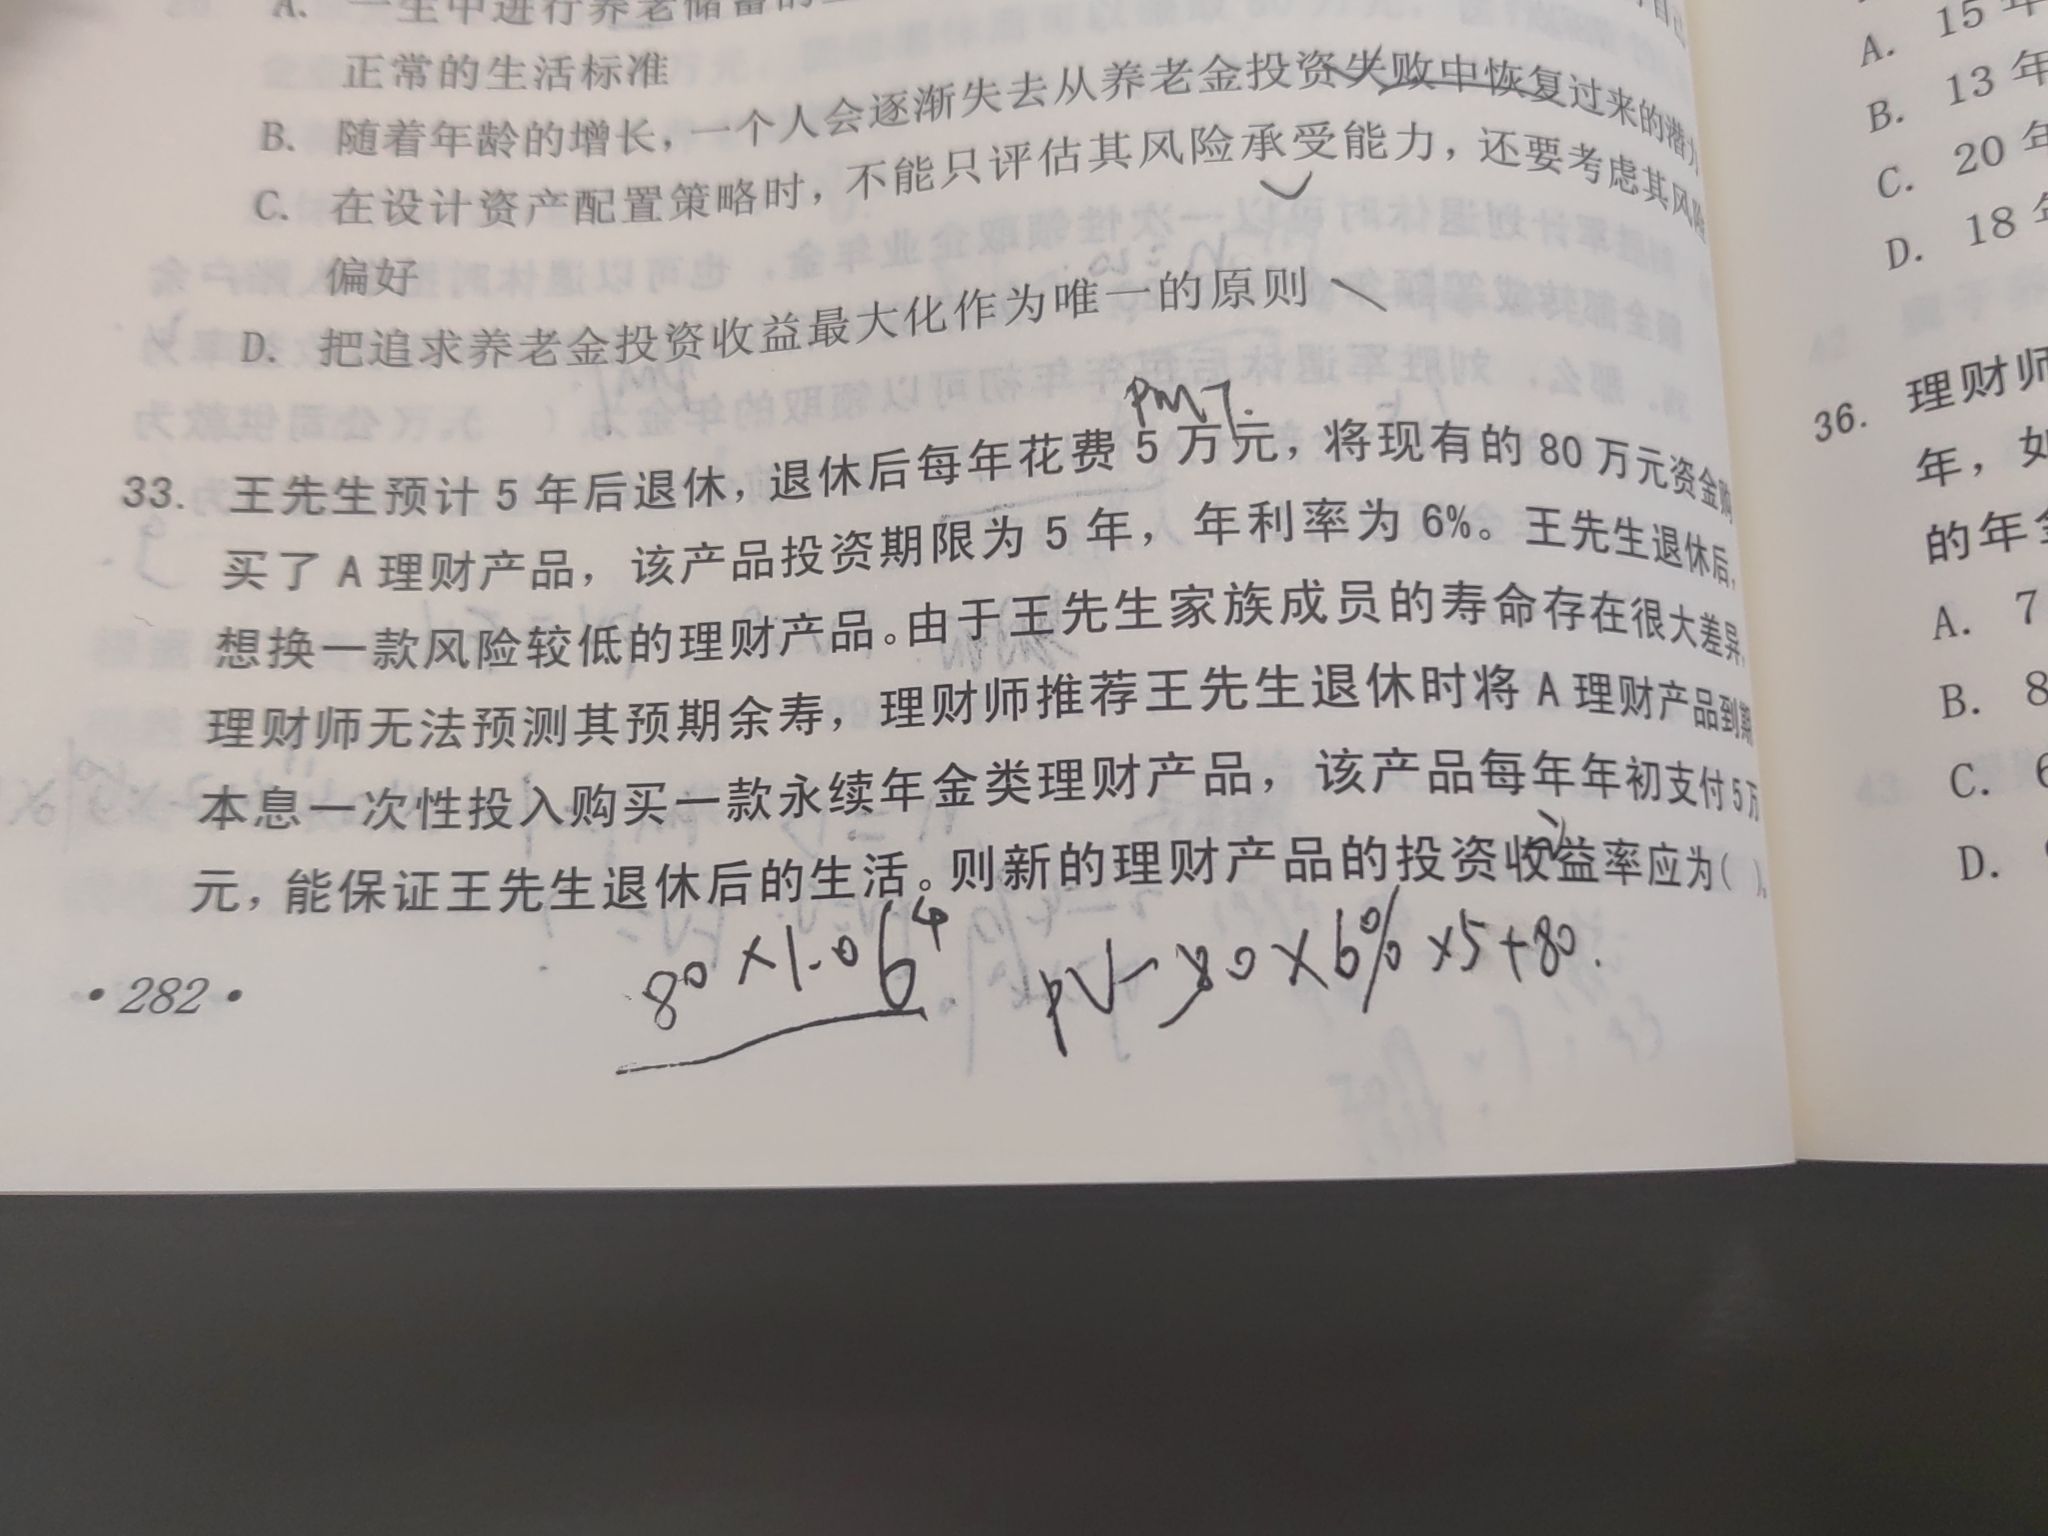 A. 一生中进行养老储备的
正常的生活标准
B. 随着年龄的增长，一个人会逐渐失去从养老金投资失败中恢复过来的潜力
C. 在设计资产配置策略时，不能只评估其风险承受能力，还要考虑其风险
偏好
D. 把追求养老金投资收益最大化作为唯一的原则
PMT.
33. 王先生预计 5 年后退休，退休后每年花费 5 万元，将现有的 80 万元资金购
买了 A 理财产品，该产品投资期限为 5 年，年利率为 6%。王先生退休后，
想换一款风险较低的理财产品。由于王先生家族成员的寿命存在很大差异，
理财师无法预测其预期余寿，理财师推荐王先生退休时将 A 理财产品到期
本息一次性投入购买一款永续年金类理财产品，该产品每年年初支付 5 万
元，能保证王先生退休后的生活。则新的理财产品的投资收益率应为( )。
80×1.06⁴ PV-80×6%×5+80.
·282·
A. 15 年
B. 13 年
C. 20 年
D. 18 年
36. 理财师
年，如
的年金
A. 7
B. 8
C. 6
D.